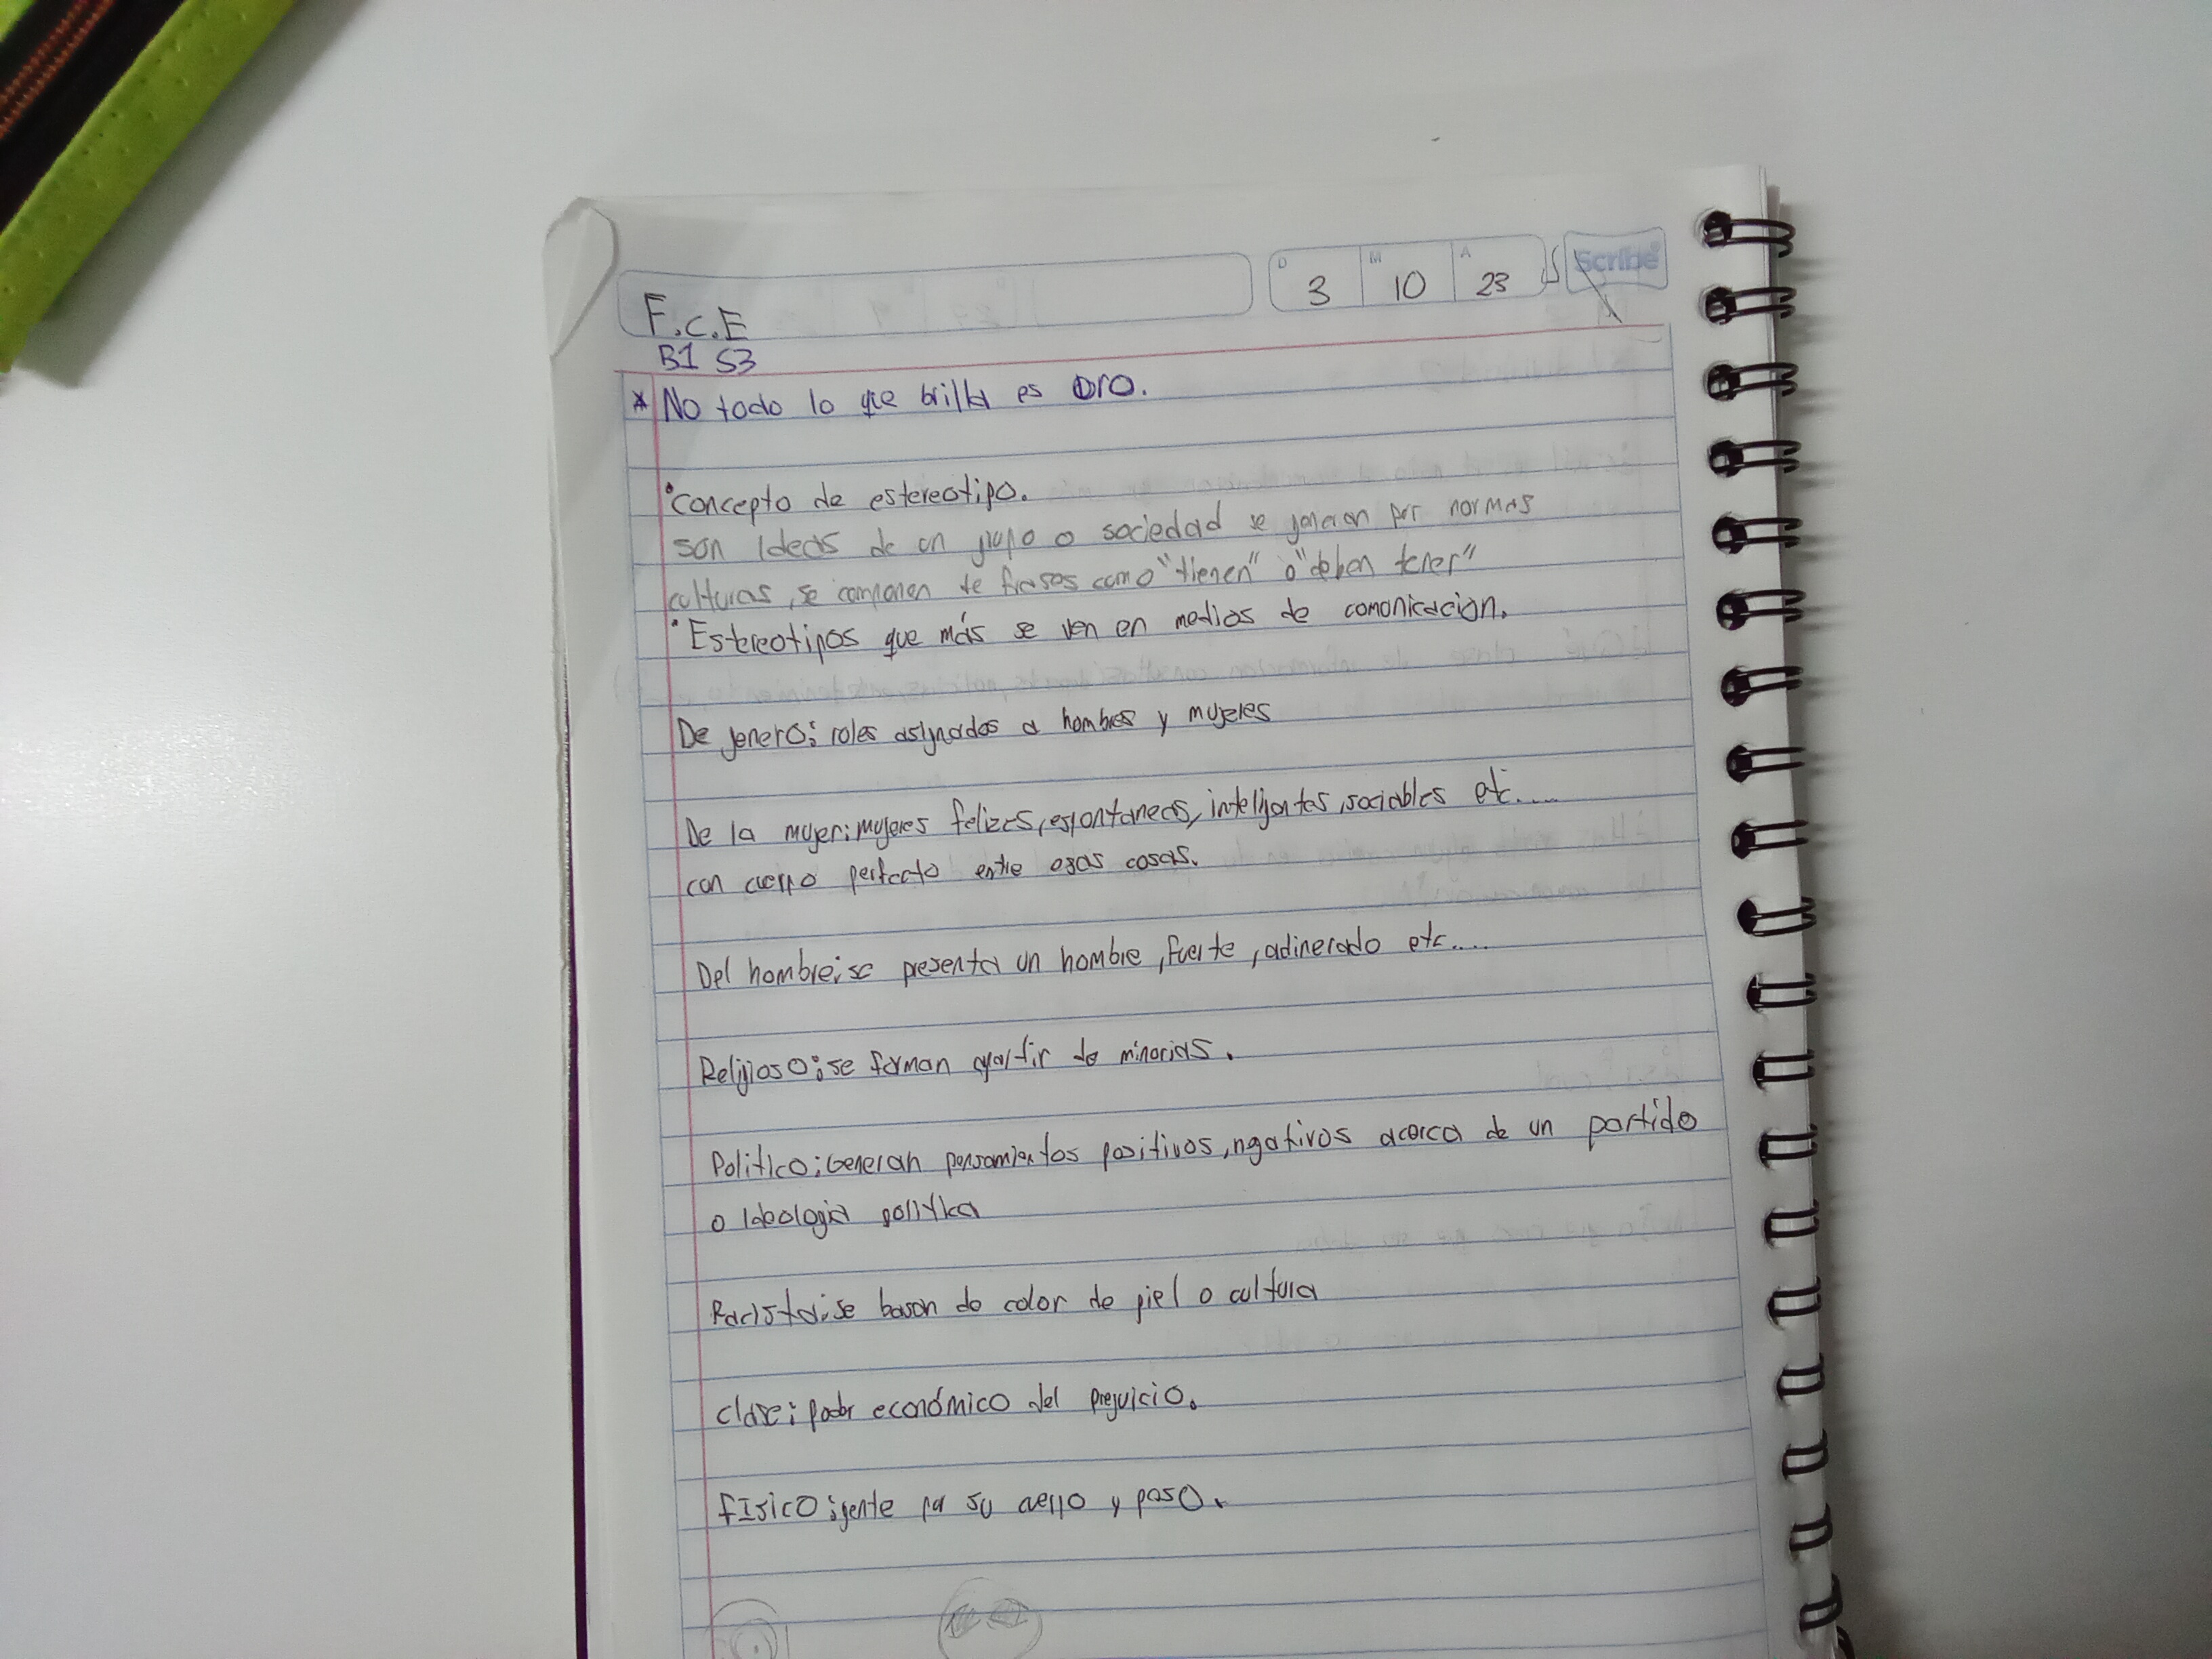 D M A
3 10 23
Scribe
F.C.E
B1 S3
* No todo lo que brilla es oro.
• concepto de estereotipo.
son Ideas de un grupo o sociedad se generan por normas
culturas, se componen de frases como "tienen" o "deben tener"
• Estereotipos que más se ven en medios de comonicacion.
De jenero: roles asignados a hombres y mujeres
De la mujer: mujeres felizes, espontaneas, inteligentes, sociables etc....
con cuerpo perfecto entre esas cosas.
Del hombre: se presenta un hombre, fuerte, adinerado etc....
Religioso: se forman apartir de minorias.
Politico: Generan pensamientos positivos, ngativos acerca de un partido
o Ideologia politica
Racista: se basan de color de piel o cultura
clase: poder económico del prejuicio.
fIsico: gente por su cuerpo y peso.